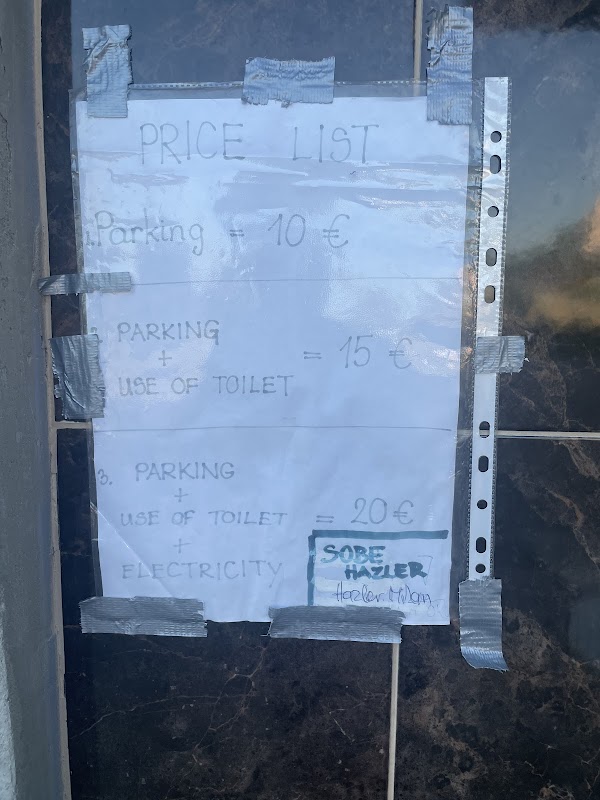 PRICE LIST
1. Parking = 10 €
2. PARKING
+
USE OF TOILET
= 15 €
3. PARKING
+
USE OF TOILET = 20 €
+
ELECTRICITY
SOBE
HAZLER
Hazler